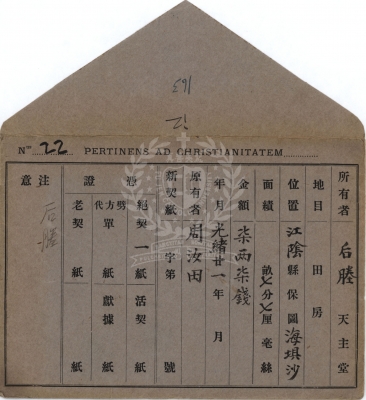 163
Nᵐ 22 PERTINENS AD CHRISTIANITATEM
所有者 后塍 天主堂
地目 田房
位置 江陰縣保圖海垻沙
面積 畝七分七厘毫絲
金額 柒兩柒錢
年月 光緒廿一年 月
原有者 周汝田
新契紙 字第 號
憑證
絕契一紙 活契 紙
代方劈單 紙 獻據 紙
老契 紙 紙
注意
后塍